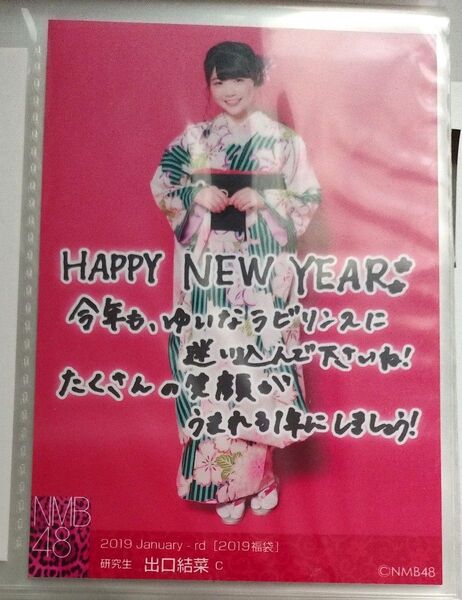 HAPPY NEW YEAR
今年も、ゆいなラビリンスに
迷い込んで下さいね!
たくさんの笑顔が
うまれる1年にしましょう!
NMB
48
2019 January - rd [2019福袋]
研究生 出口結菜 C
©NMB48